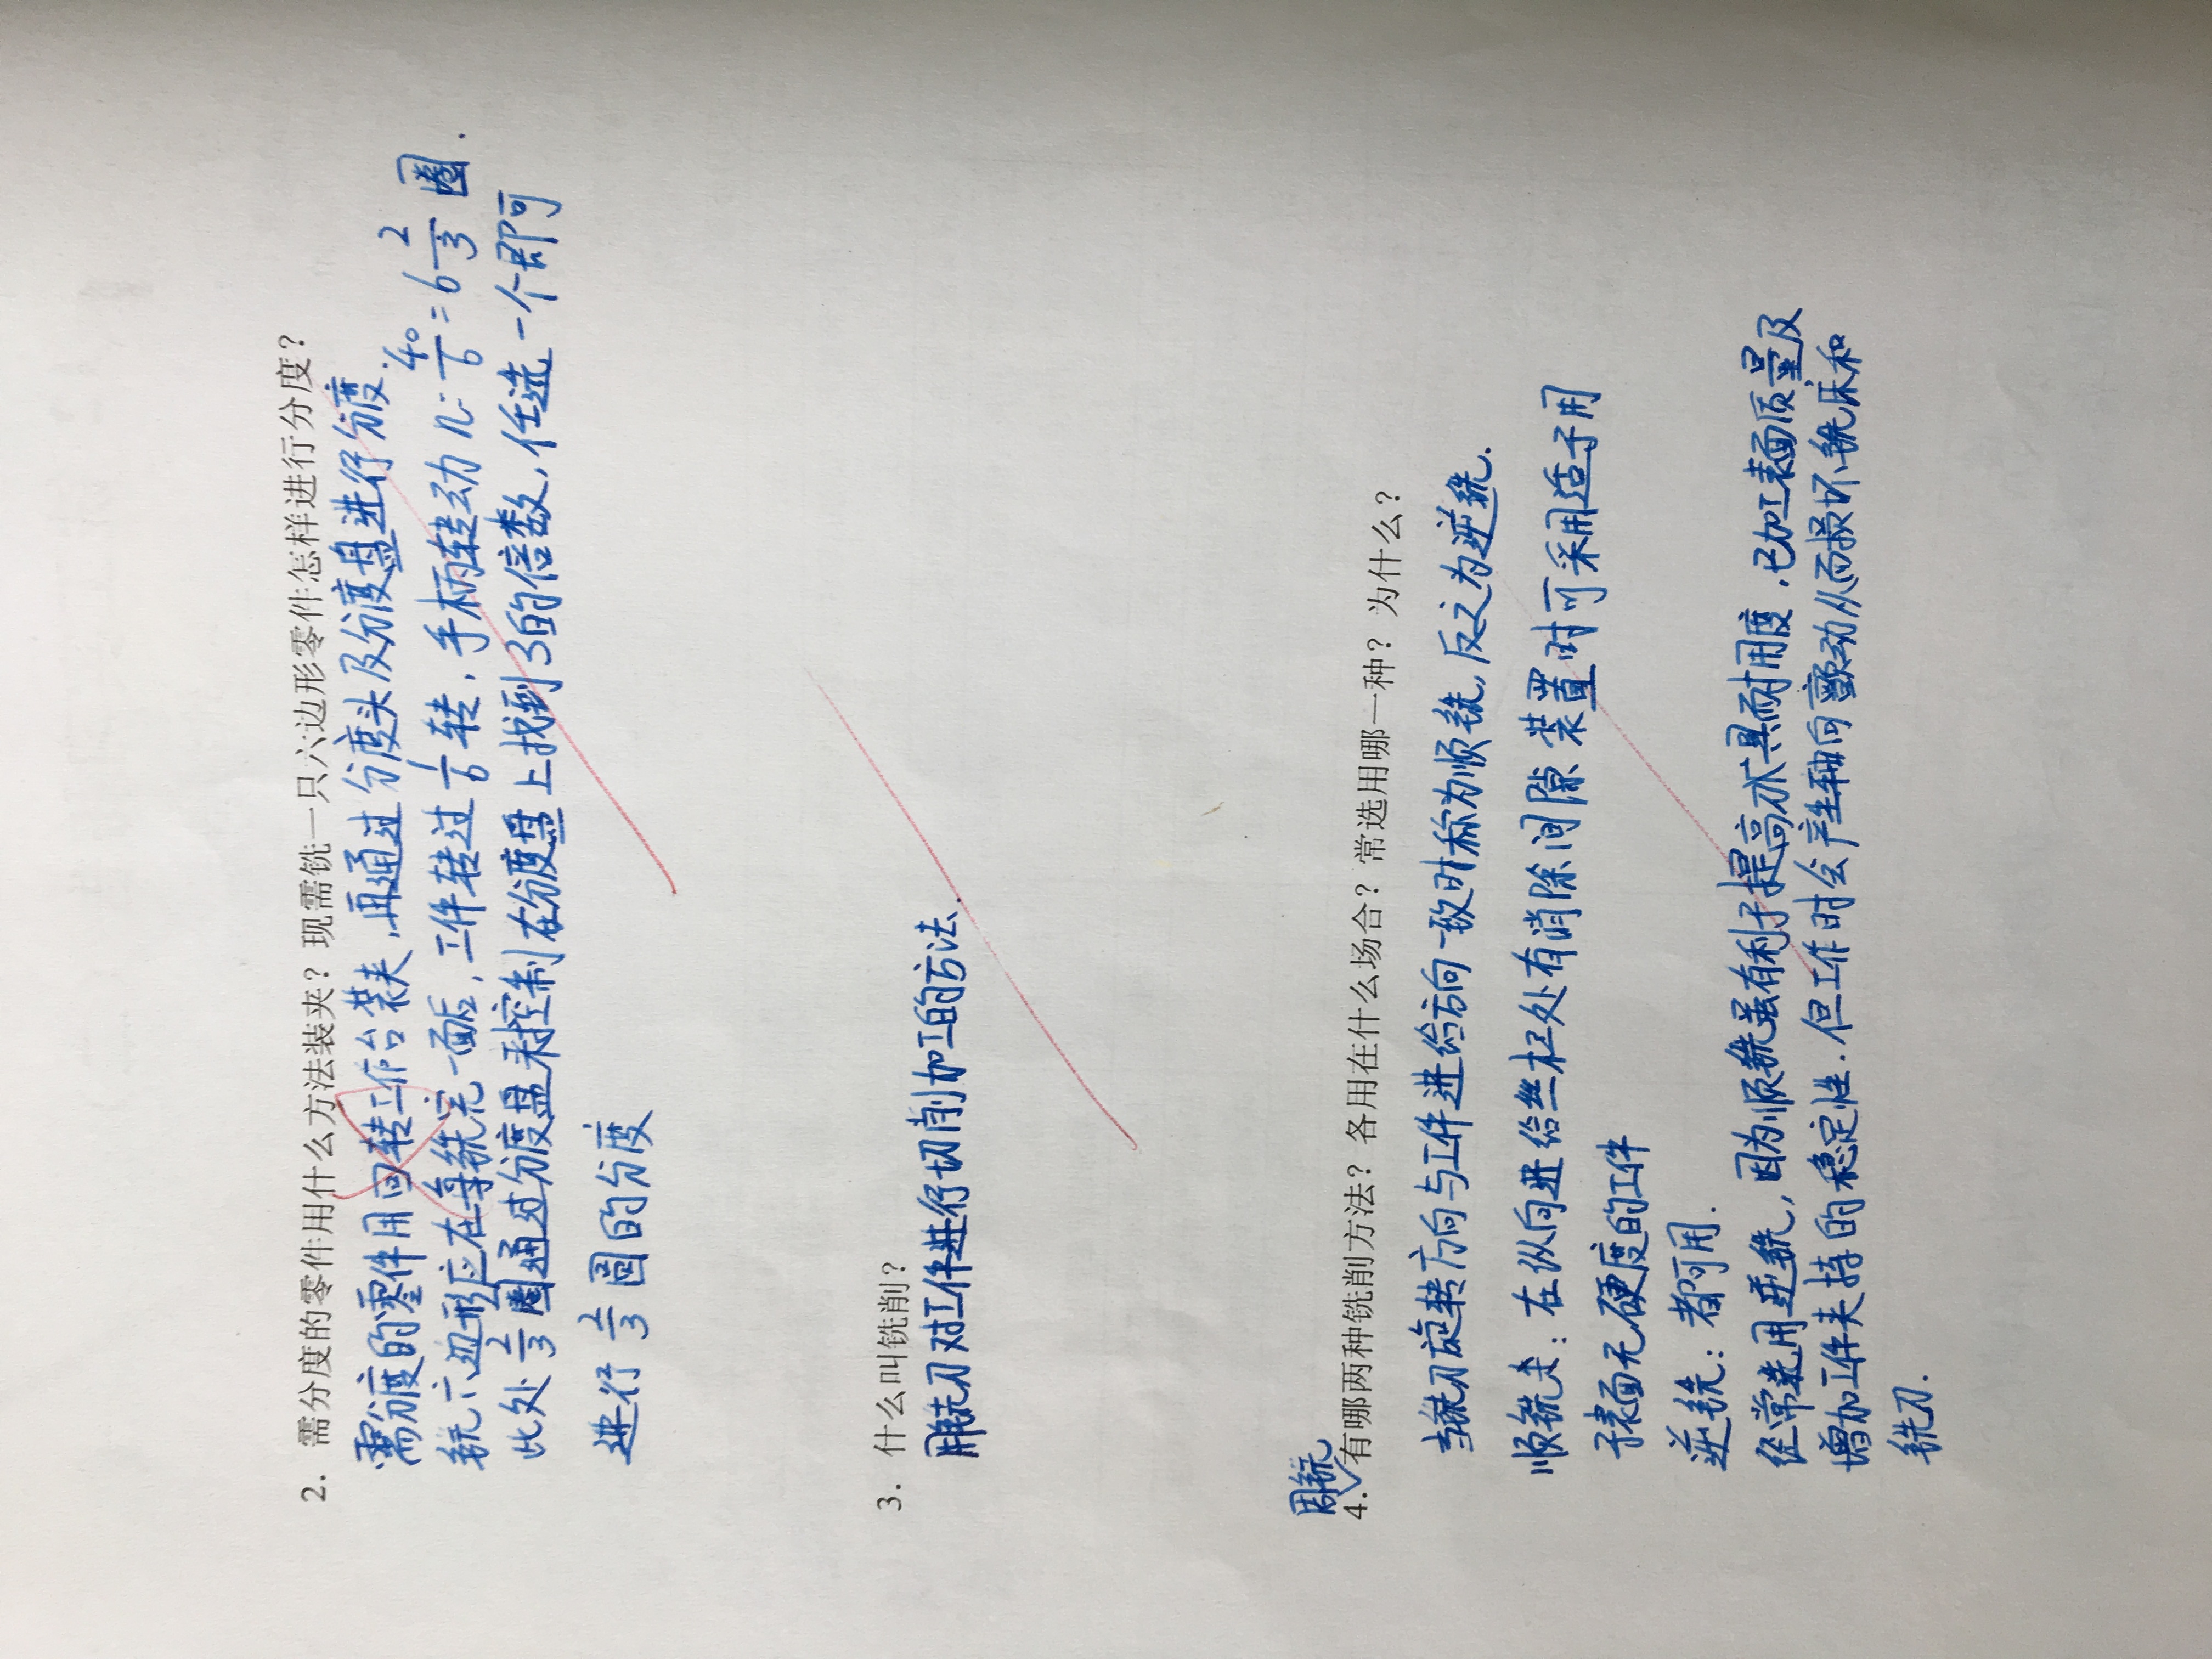 2. 需分度的零件用什么方法装夹？现需铣一只六边形零件怎样进行分度？
需分度的零件用回转工作台装夹，再通过分度头及分度盘进行分度.
铣六边形应在每铣完一面后，工件转过1/6转，手柄转动 n=40/6=6 2/3 圈.
此处2/3圈通过分度盘来控制在分度盘上找到3的倍数，任选一个即可
进行2/3圆的分度
3. 什么叫铣削？
用铣刀对工件进行切削加工的方法.
周铣
4. 有哪两种铣削方法？各用在什么场合？常选用哪一种？为什么？
当铣刀旋转方向与工件进给方向一致时称为顺铣，反之为逆铣.
顺铣：在纵向进给丝杠处有消除间隙装置时可采用适于用
于表面无硬度的工件
逆铣：都可用.
经常选用逆铣，因为顺铣虽有利于提高刀具耐用度，已加工表面质量及
增加工件夹持的稳定性.但工作时会产生轴向颤动从而损坏铣床和
铣刀.